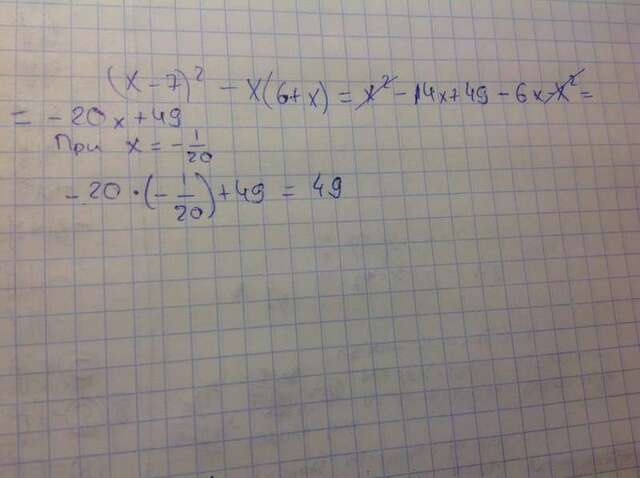 (x - 7)² - x(6 + x) = x² - 14x + 49 - 6x - x² =
= - 20x + 49
При x = - 1/20
- 20 · (- 1/20) + 49 = 49